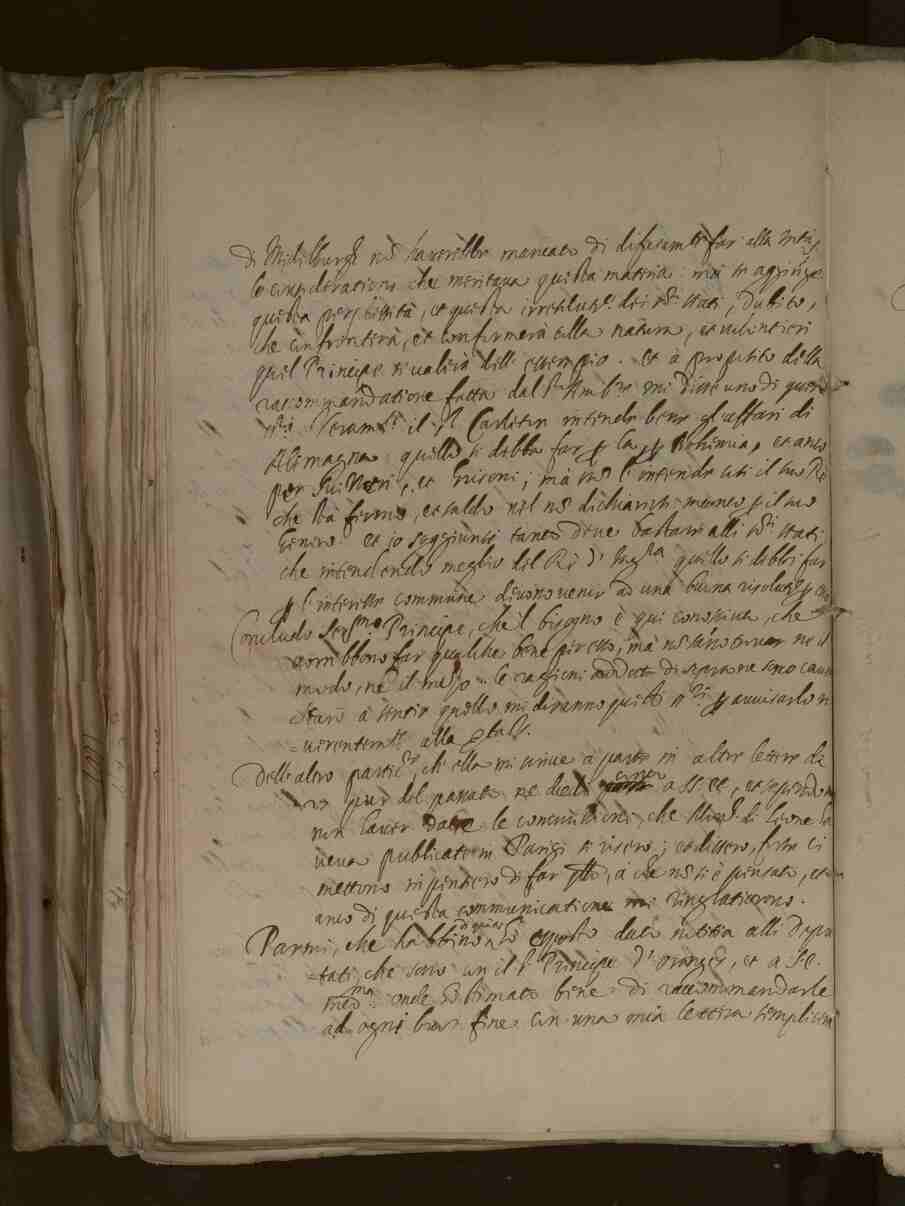 di Midilburgh nõ haverebbe mancato di
le considerationi che meritava questa materia: mà se aggiõge
questa perplessità, et questa irresolut.ne dei s.ri stati, dubito,
che confronterà, et confirmerà alla natura, et volontieri
quel Principe si valerà dell' essempio. et à proposito della
raccommandatione fatta dal s.r Amb.re mi disse uno di questi
s.ri Veram.te il s.r Carleton intende bene gl'affari di
Alemagna quello si debba far p la Bohemia, et anco
per Sviceri, et Grisoni; mà nõ l'intende così il suo Rè
che stà fermo, et saldo nel nõ dichiarirsi meno p il suo
Genero. et io soggiunsi tanto deve bastare alli s.ri stati
che intendendo meglio del Rè d' Ing.ra quello si debbi far
p l'interesse commune devono venir ad una buona risolut.ne p
Concludo Ser.mo Principe, che 'l bisogno è qui conosciuto, che
vorrebbono far qualche bene per esso, mà nõ sãno trovar ne il
modo, nè il mezo. le ragioni di sopra ne sono causa
Starò à sentir quello mi diranno questi s.ri p avvisarlo ri=
=verentem.te alla
Dell' altro partic.re, ch' ella mi scrive à parte in altre lettere de
pur del passato ne diedi à SS. EE, et
non haver le commissioni, che Mons.r di Leone ha
veva publicate in Parigi si risero; et dissero, forse ci
mettono in pensiero di far q̃llo, à che nõ si è pensato, et
anco di questa communicatione mi ringratiorono.
Parmi, che habbino di questo data notitia alli Depu
=tati, che sono con il s.r Principe d' Oranges, et a S. E.
med.ma onde hò stimato bene di raccommandarle
ad ogni buon fine con una mia lettera semplicem.te